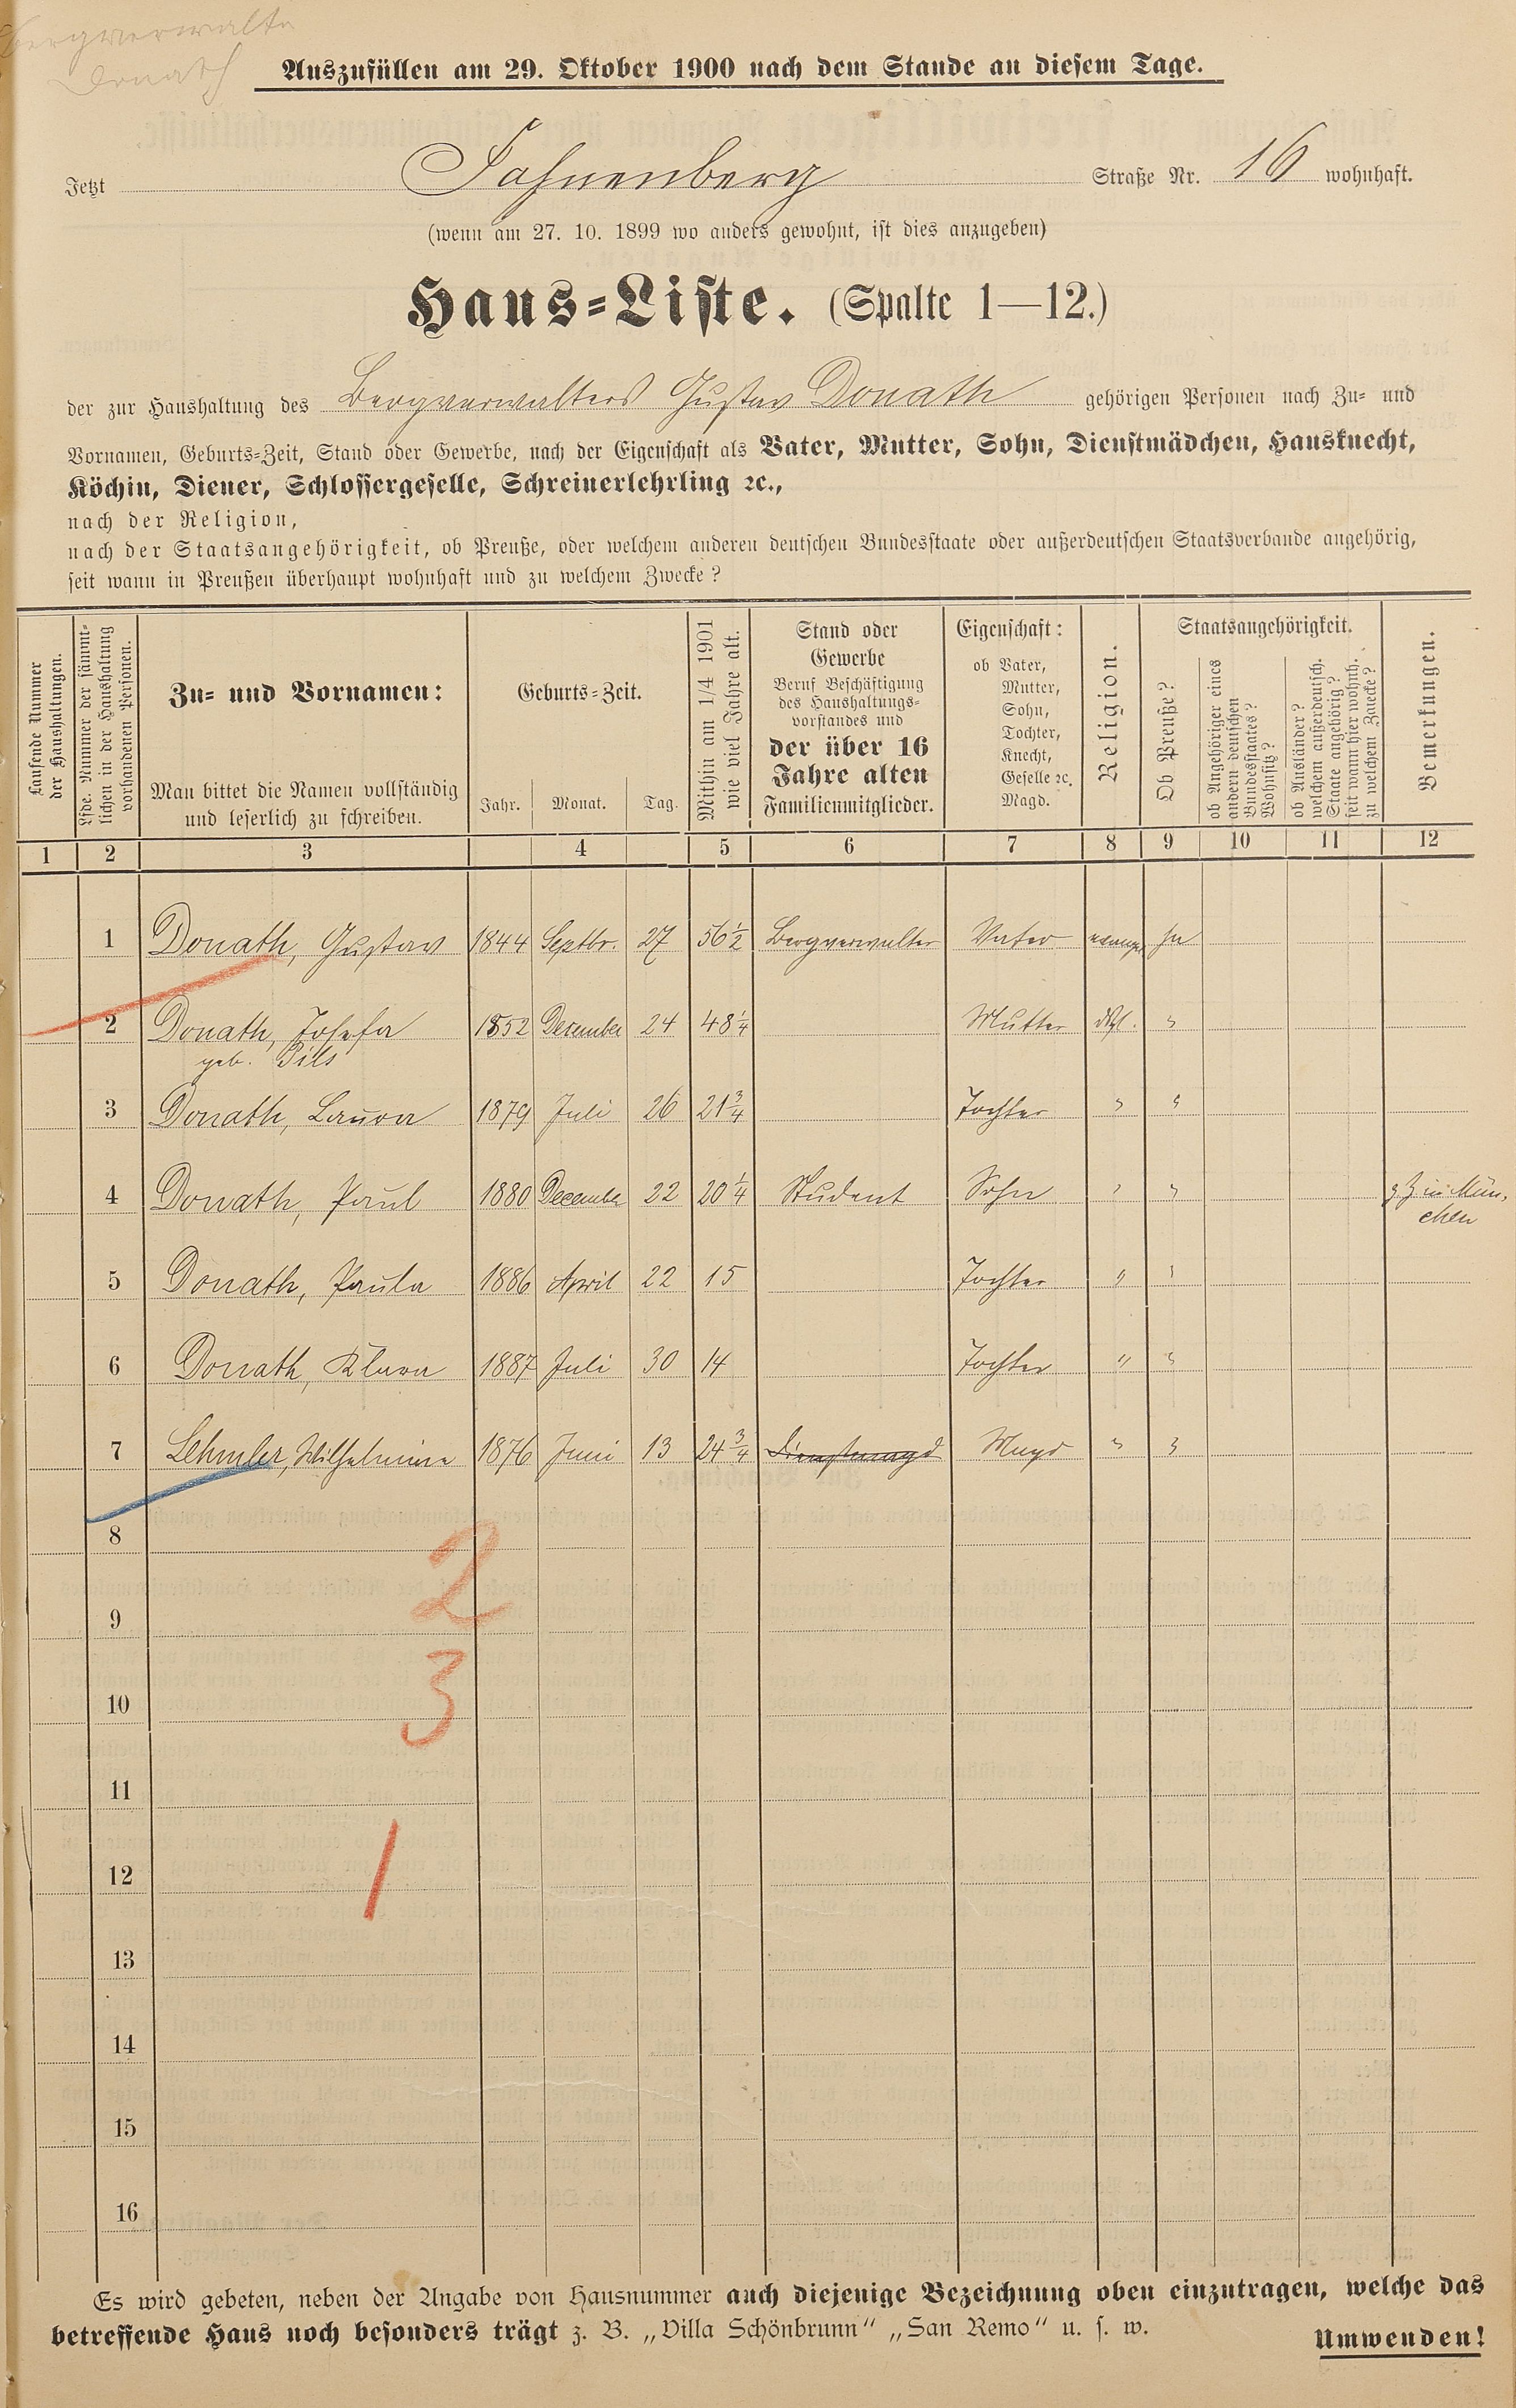 Bergverwalter
Donath
Auszufüllen am 29. Oktober 1900 nach dem Stande an diesem Tage.
Jetzt Fahnenberg Straße Nr. 16 wohnhaft.
(wenn am 27. 10. 1899 wo anders gewohnt, ist dies anzugeben)
Haus-Liste. (Spalte 1—12.)
der zur Haushaltung des Bergverwalters Gustav Donath gehörigen Personen nach Zu- und
Vornamen, Geburts-Zeit, Stand oder Gewerbe, nach der Eigenschaft als Vater, Mutter, Sohn, Dienstmädchen, Hausknecht,
Köchin, Diener, Schlossergeselle, Schreinerlehrling ꝛc.,
nach der Religion,
nach der Staatsangehörigkeit, ob Preuße, oder welchem anderen deutschen Bundesstaate oder außerdeutschen Staatsverbande angehörig,
seit wann in Preußen überhaupt wohnhaft und zu welchem Zwecke?
Laufende Nummer
der Haushaltungen.
Lfde. Nummer der sämmt-
lichen in der Haushaltung
vorhandenen Personen.
Zu- und Vornamen:
Man bittet die Namen vollständig
und leserlich zu schreiben.
Geburts-Zeit.
Jahr. Monat. Tag.
Mithin am 1/4 1901
wie viel Jahre alt.
Stand oder
Gewerbe
Beruf Beschäftigung
des Haushaltungs-
vorstandes und
der über 16
Jahre alten
Familienmitglieder.
Eigenschaft:
ob Vater,
Mutter,
Sohn,
Tochter,
Knecht,
Geselle ꝛc.
Magd.
Religion.
Staatsangehörigkeit.
Ob Preuße?
ob Angehöriger eines
andern deutschen
Bundesstaates?
Wohnsitz?
ob Ausländer?
welchem außerdeutsch.
Staate angehörig?
seit wann hier wohnh.
zu welchem Zwecke?
Bemerkungen.
1 2 3 4 5 6 7 8 9 10 11 12
1 Donath, Gustav 1844 Septbr. 27 56 1/2 Bergverwalter Vater evang. Ja
2 Donath, Josefa 1852 Dezember 24 48 1/4 Mutter "
geb. Pils
3 Donath, Laura 1879 Juli 26 21 3/4 Tochter " "
4 Donath, Paul 1880 December 22 20 1/4 Student Sohn " " z. Z. in Mün-
chen
5 Donath, Paula 1886 April 22 15 Tochter " "
6 Donath, Klara 1887 Juli 30 14 Tochter " "
7 Lehmler, Wilhelmine 1876 Juni 13 24 3/4 Dienstmagd Magd " "
8
2
9
3
10
11
1
12
13
14
15
16
Es wird gebeten, neben der Angabe von Hausnummer auch diejenige Bezeichnung oben einzutragen, welche das
betreffende Haus noch besonders trägt z. B. „Villa Schönbrunn“ „San Remo“ u. s. w.
Umwenden!